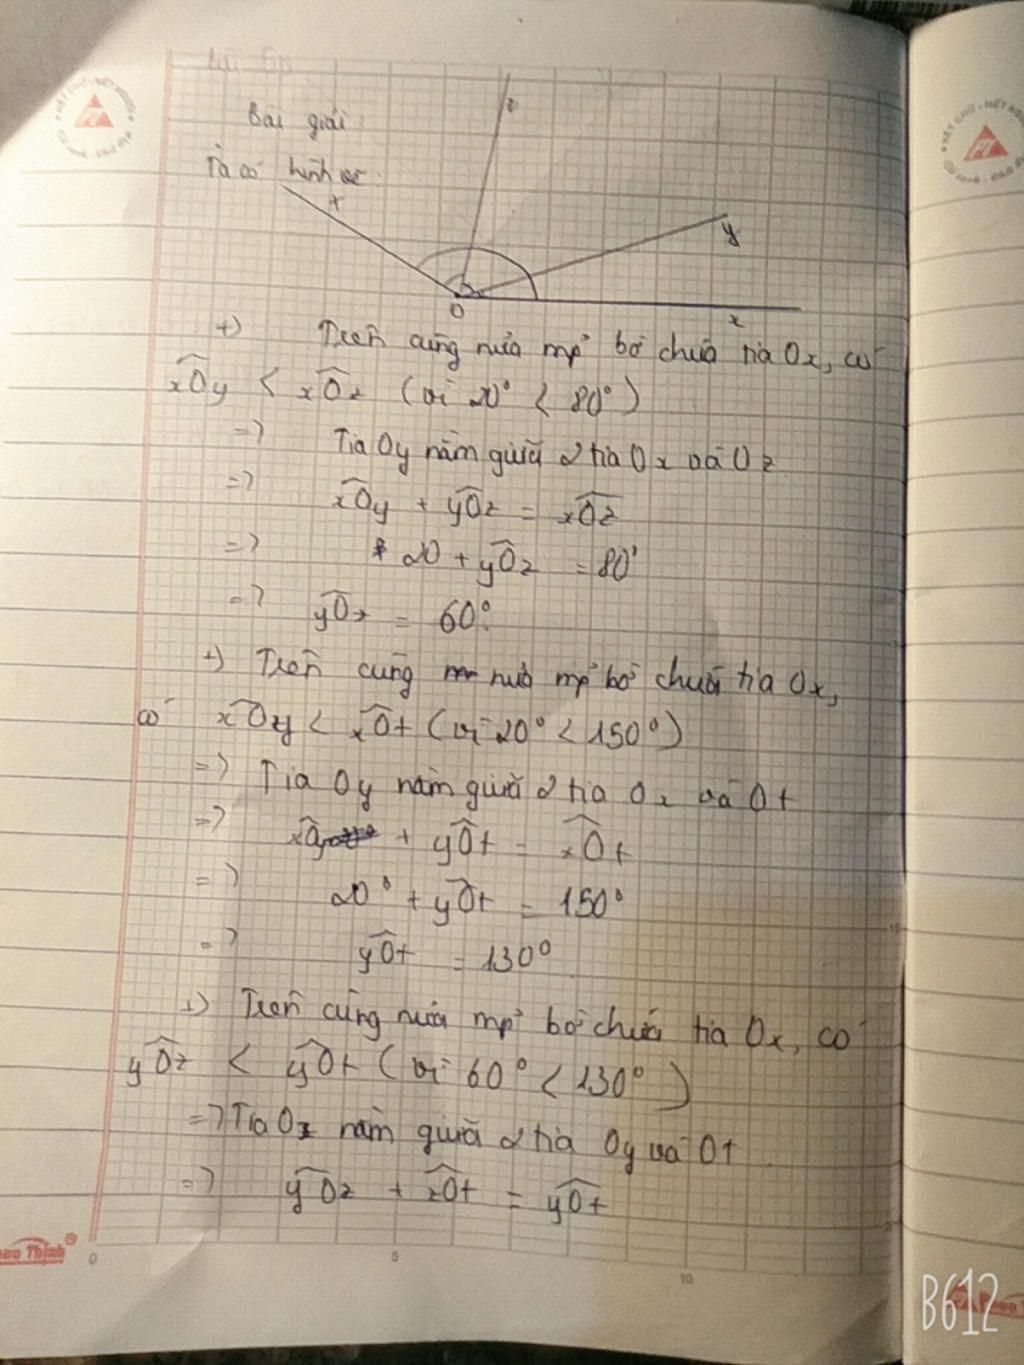 Bài giải
Ta có hình vẽ
z
t
y
O
x
+) Trên cùng nửa mp bờ chứa tia Ox, có
xÔy < xÔz (vì 20° < 80°)
=> Tia Oy nằm giữa 2 tia Ox và Oz
=> xÔy + yÔz = xÔz
=> 20 + yÔz = 80°
=> yÔz = 60°.
+) Trên cùng nửa mp bờ chứa tia Ox,
có xÔy < xÔt (vì 20° < 150°)
=> Tia Oy nằm giữa 2 tia Ox và Ot
=> xÔy + yÔt = xÔt
=> 20° + yÔt = 150°
=> yÔt = 130°
+) Trên cùng nửa mp bờ chứa tia Ox, có
yÔz < yÔt (vì 60° < 130°)
=> Tia Oz nằm giữa 2 tia Oy và Ot
=> yÔz + zÔt = yÔt
0 5 10
B612